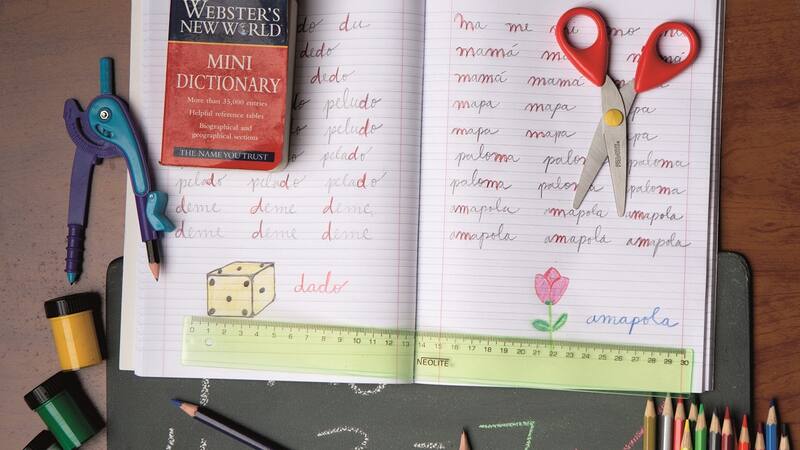 WEBSTER'S
NEW WORLD
MINI
DICTIONARY
More than 35,000 entries
Helpful reference tables
Biographical and
geographical sections
THE NAME YOU TRUST
dado du
dedo
dedo
peludo
peludo
pelado
pelado pelado pelado
deme deme deme
deme deme deme
dado
ma me mo mu
mamá
mamá mamá
mapa mapa
mapa mapa
paloma paloma paloma
paloma paloma paloma
amapola amapola amapola
amapola amapola amapola
amapola
0 1 2 3 4 5 6 7 8 9 10 11 12 13 14 15 16 17 18 19 20 21 22 23 24 25 26 27 28 29 30
NEOLITE